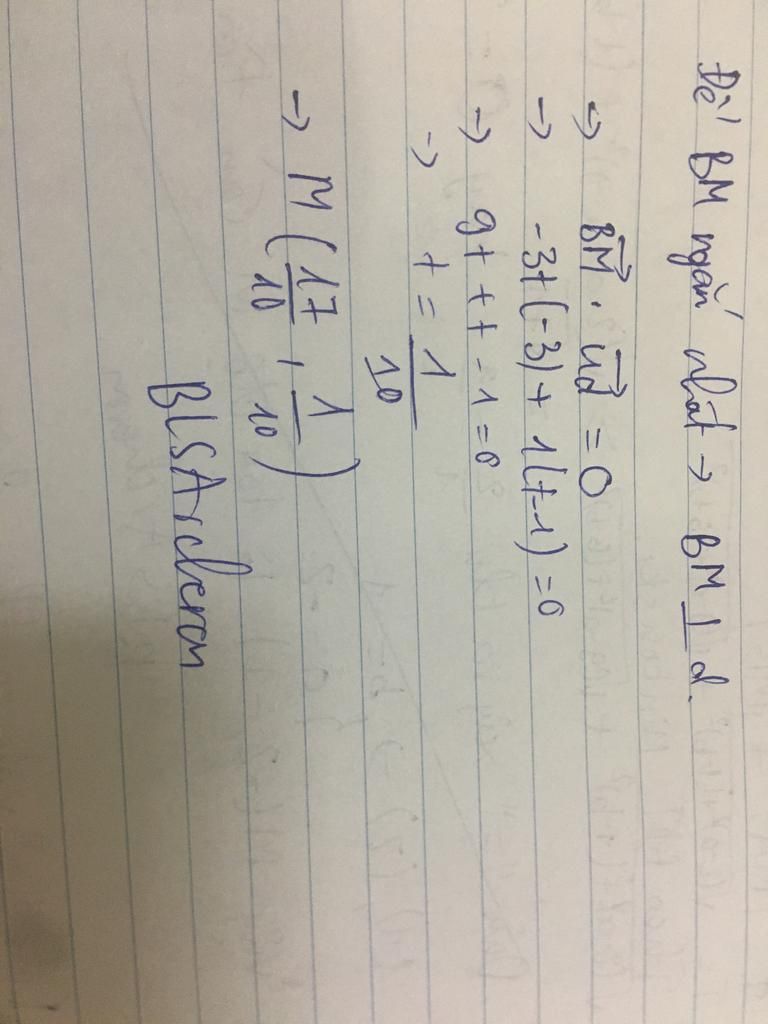 Để BM ngắn nhất → BM ⊥ d.
→ BM⃗ . ud⃗ = 0
→ -3t(-3) + 1(t-1) = 0
→ 9t + t - 1 = 0
→ t = 1/10
→ M (17/10, 1/10)
BLSArcheron